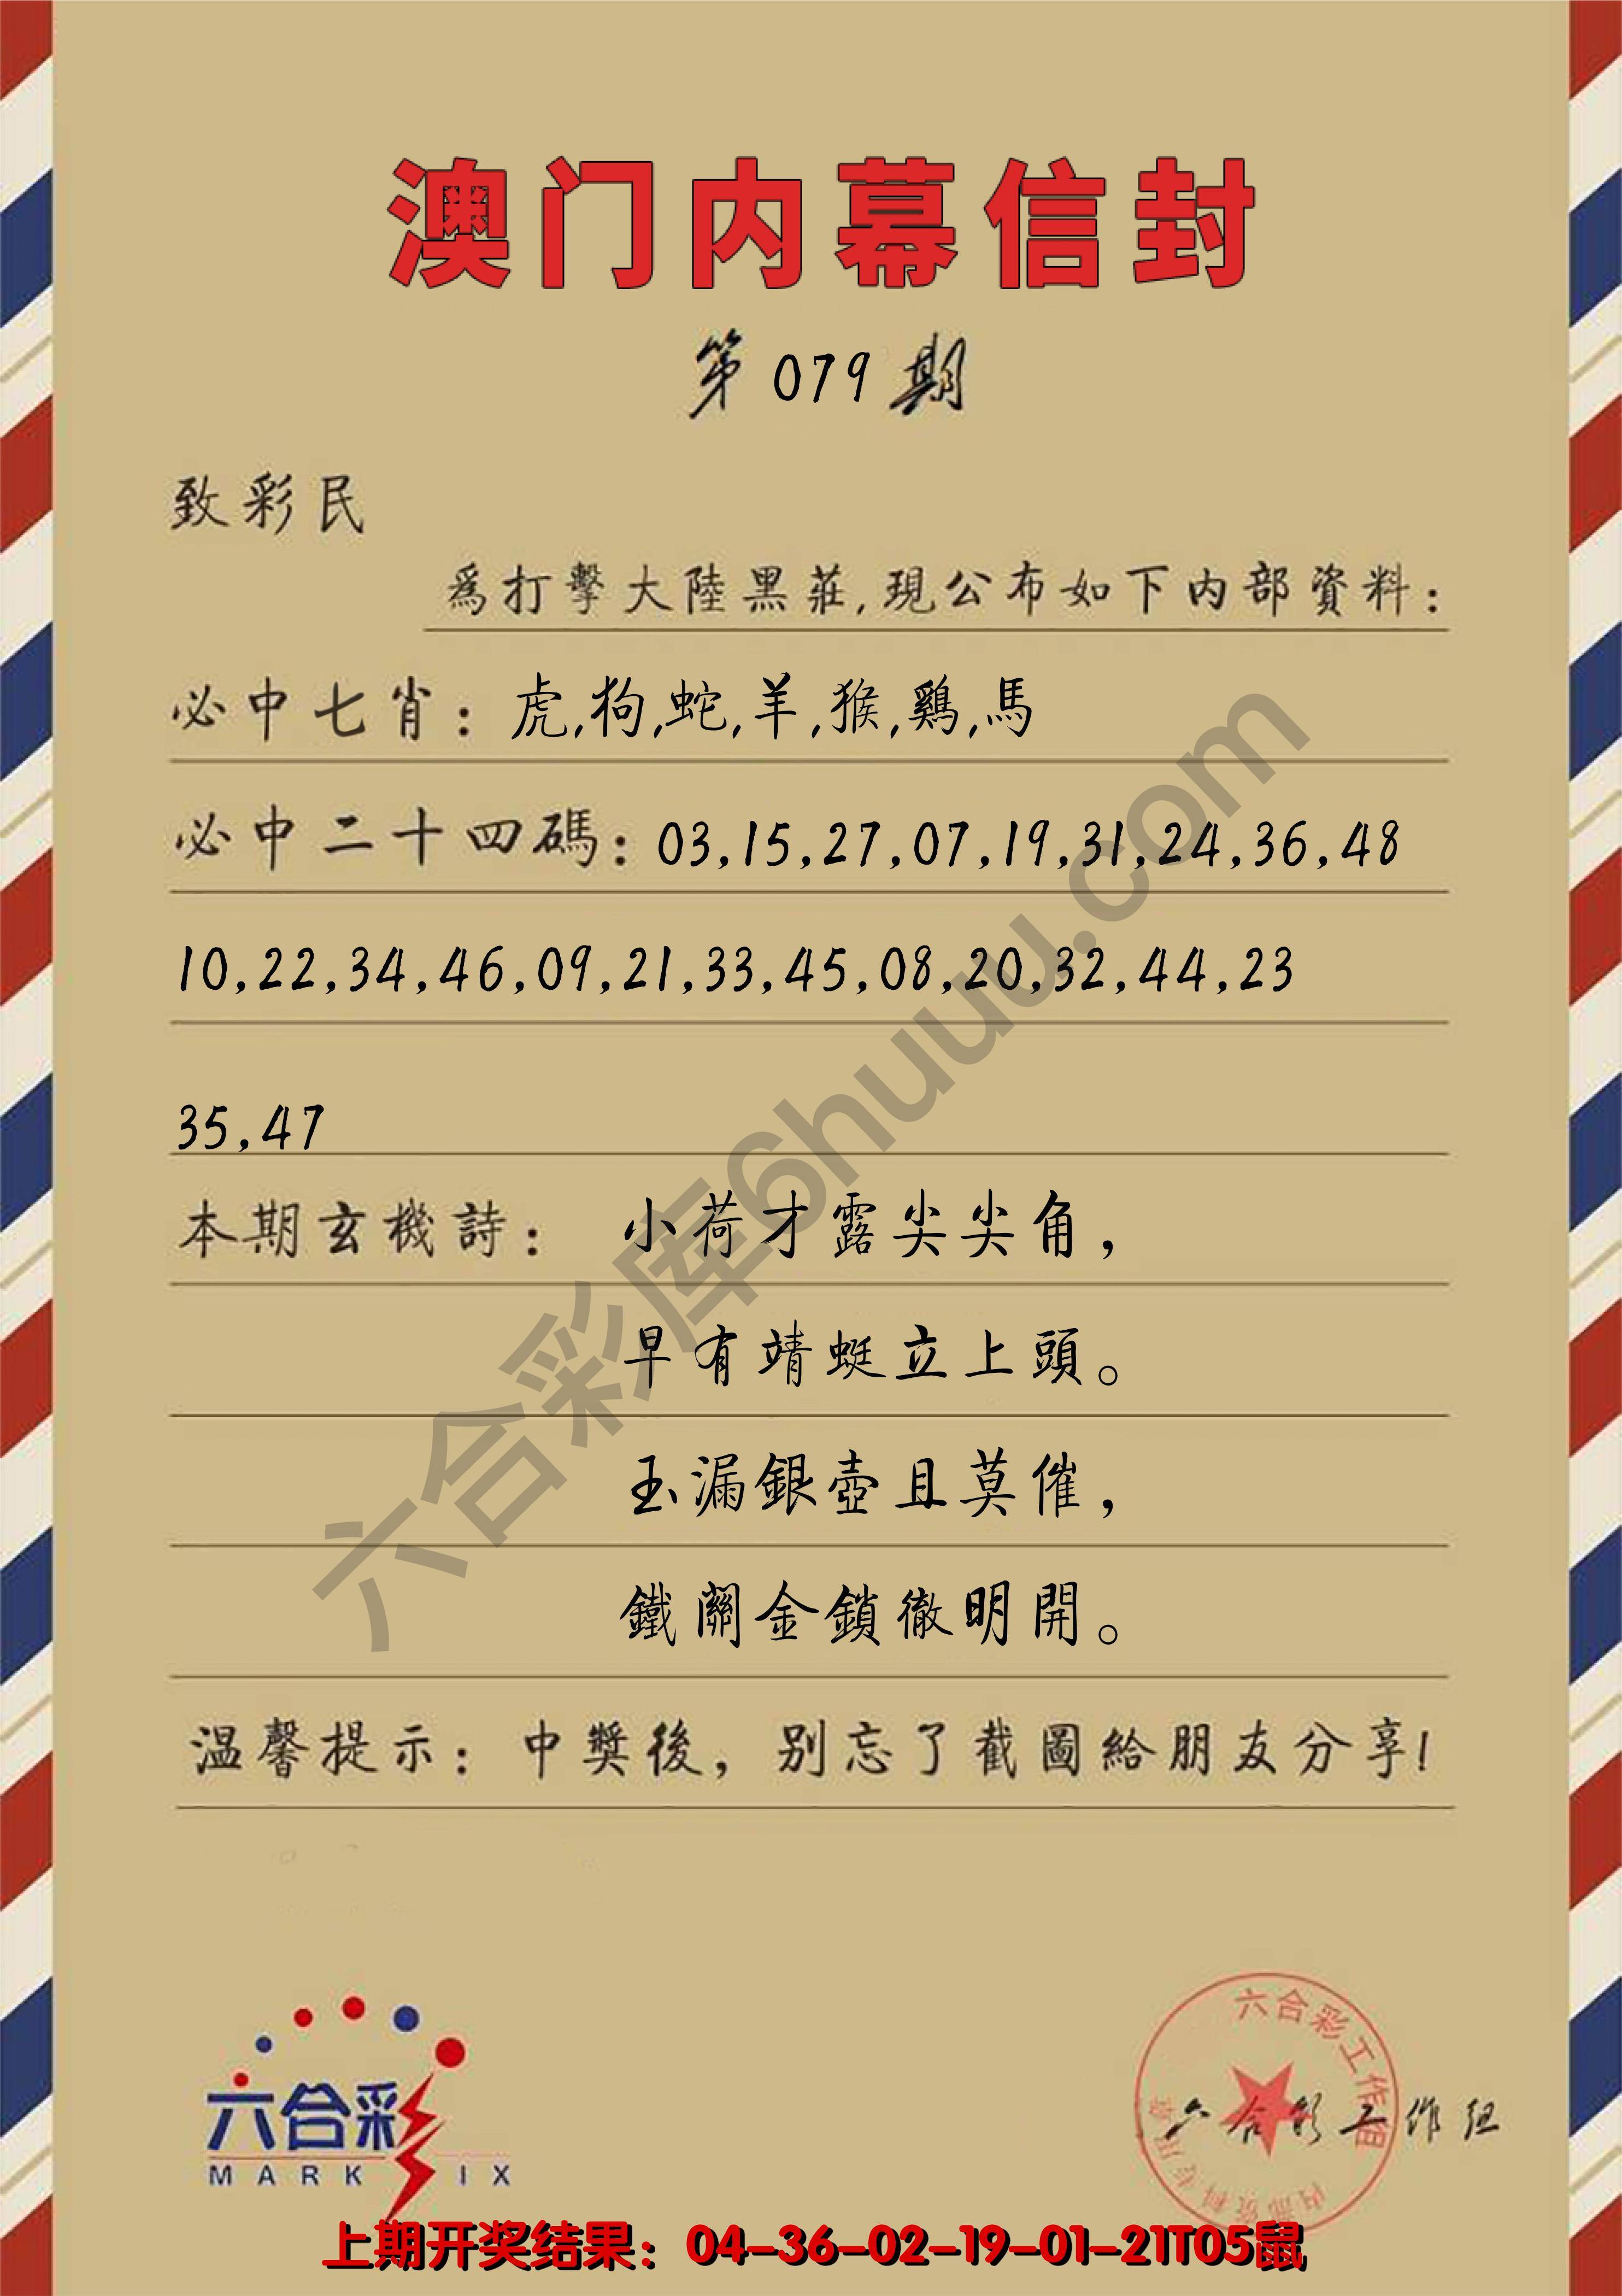 澳门内幕信封
第079期
致彩民
爲打擊大陸黑莊,現公布如下内部資料:
必中七肖: 虎,狗,蛇,羊,猴,鷄,馬
必中二十四碼: 03,15,27,07,19,31,24,36,48
10,22,34,46,09,21,33,45,08,20,32,44,23
35,47
本期玄機詩: 小荷才露尖尖角,
早有靖蜓立上頭。
玉漏銀壺且莫催,
鐵關金鎖徹明開。
温馨提示: 中獎後, 别忘了截圖給朋友分享!
六合彩库6huuu.com
六合彩
MARK IX
六合彩工作组
内部资料专用章
六合彩工作组
上期开奖结果: 04-36-02-19-01-21T05鼠